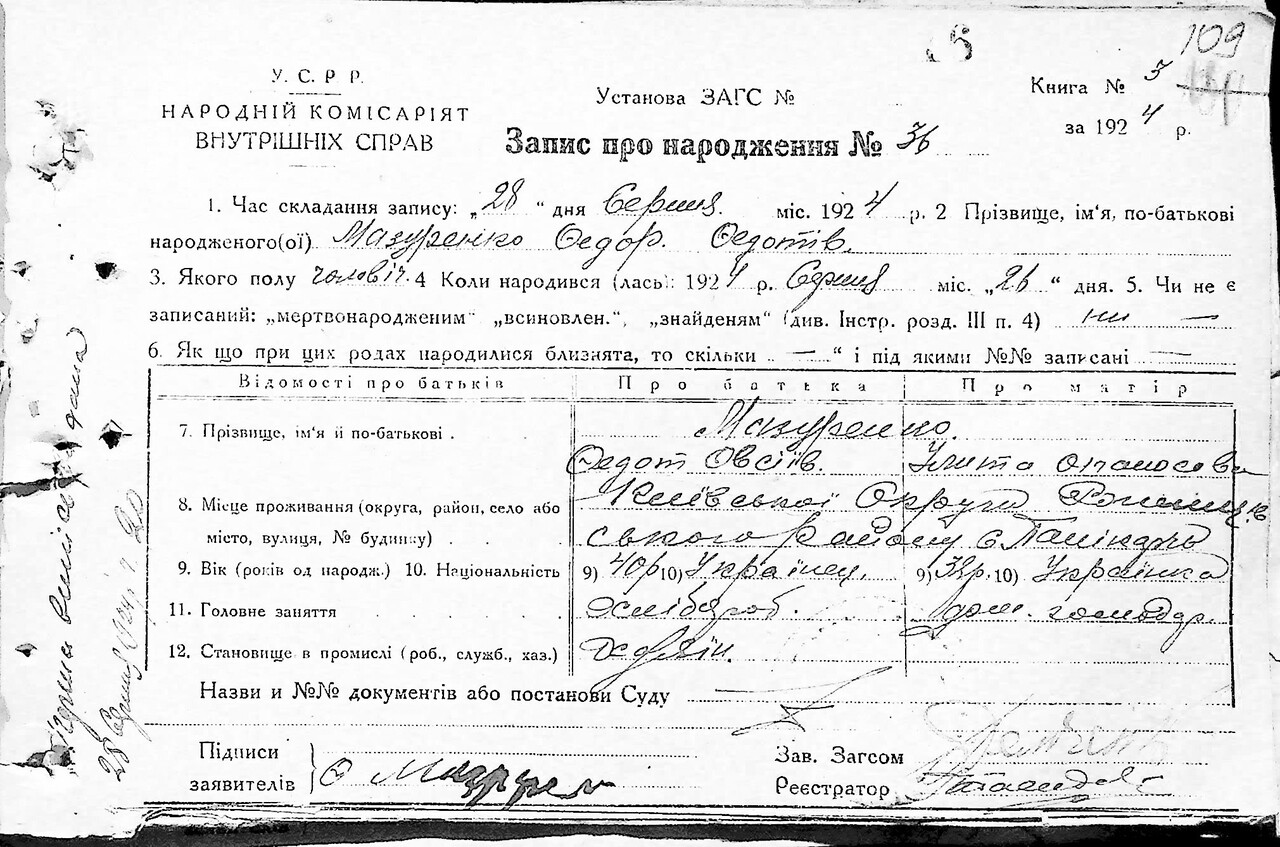 109
У. С. Р Р.
НАРОДНІЙ КОМІСАРІЯТ
ВНУТРІШНІХ СПРАВ
Установа ЗАГС №
Книга № 3
за 1924 р.
Запис про народження № 36
1. Час складання запису: „28" дня Серпня міс. 1924 р. 2 Прізвище, ім'я, по-батькові
народженого(ої) Мазуренко Федор. Федотів.
3. Якого полу чоловіч. 4 Коли народився (лась): 1924 р. Серпня міс. „26" дня. 5. Чи не є
записаний: „мертвонародженим" „всиновлен.", „знайденям" (див. Інстр. розд. III п. 4) ни —
6. Як що при цих родах народилися близнята, то скільки „ — " і під якими №№ записані —
Відомості про батьків Про батька Про матір
7. Прізвище, ім'я й по-батькові . Мазуренко.
Федот Овсіїв. Улита Опанасова
8. Місце проживання (округа, район, село або Київської Округи
місто, вулиця, № будинку) . . . ського Району с.
9. Вік (років од народж.) 10. Національність 9) 40р 10) Українец. 9) 32р. 10) Українка
11. Головне заняття . . . Хлібороб. дом. господар.
12. Становище в промислі (роб., служб., хаз.) Хазяїн.
Назви и №№ документів або постанови Суду
Підписи
заявителів } Ф Мазурен
Зав. Загсом
Реєстратор
28 Серпня 1924 р.